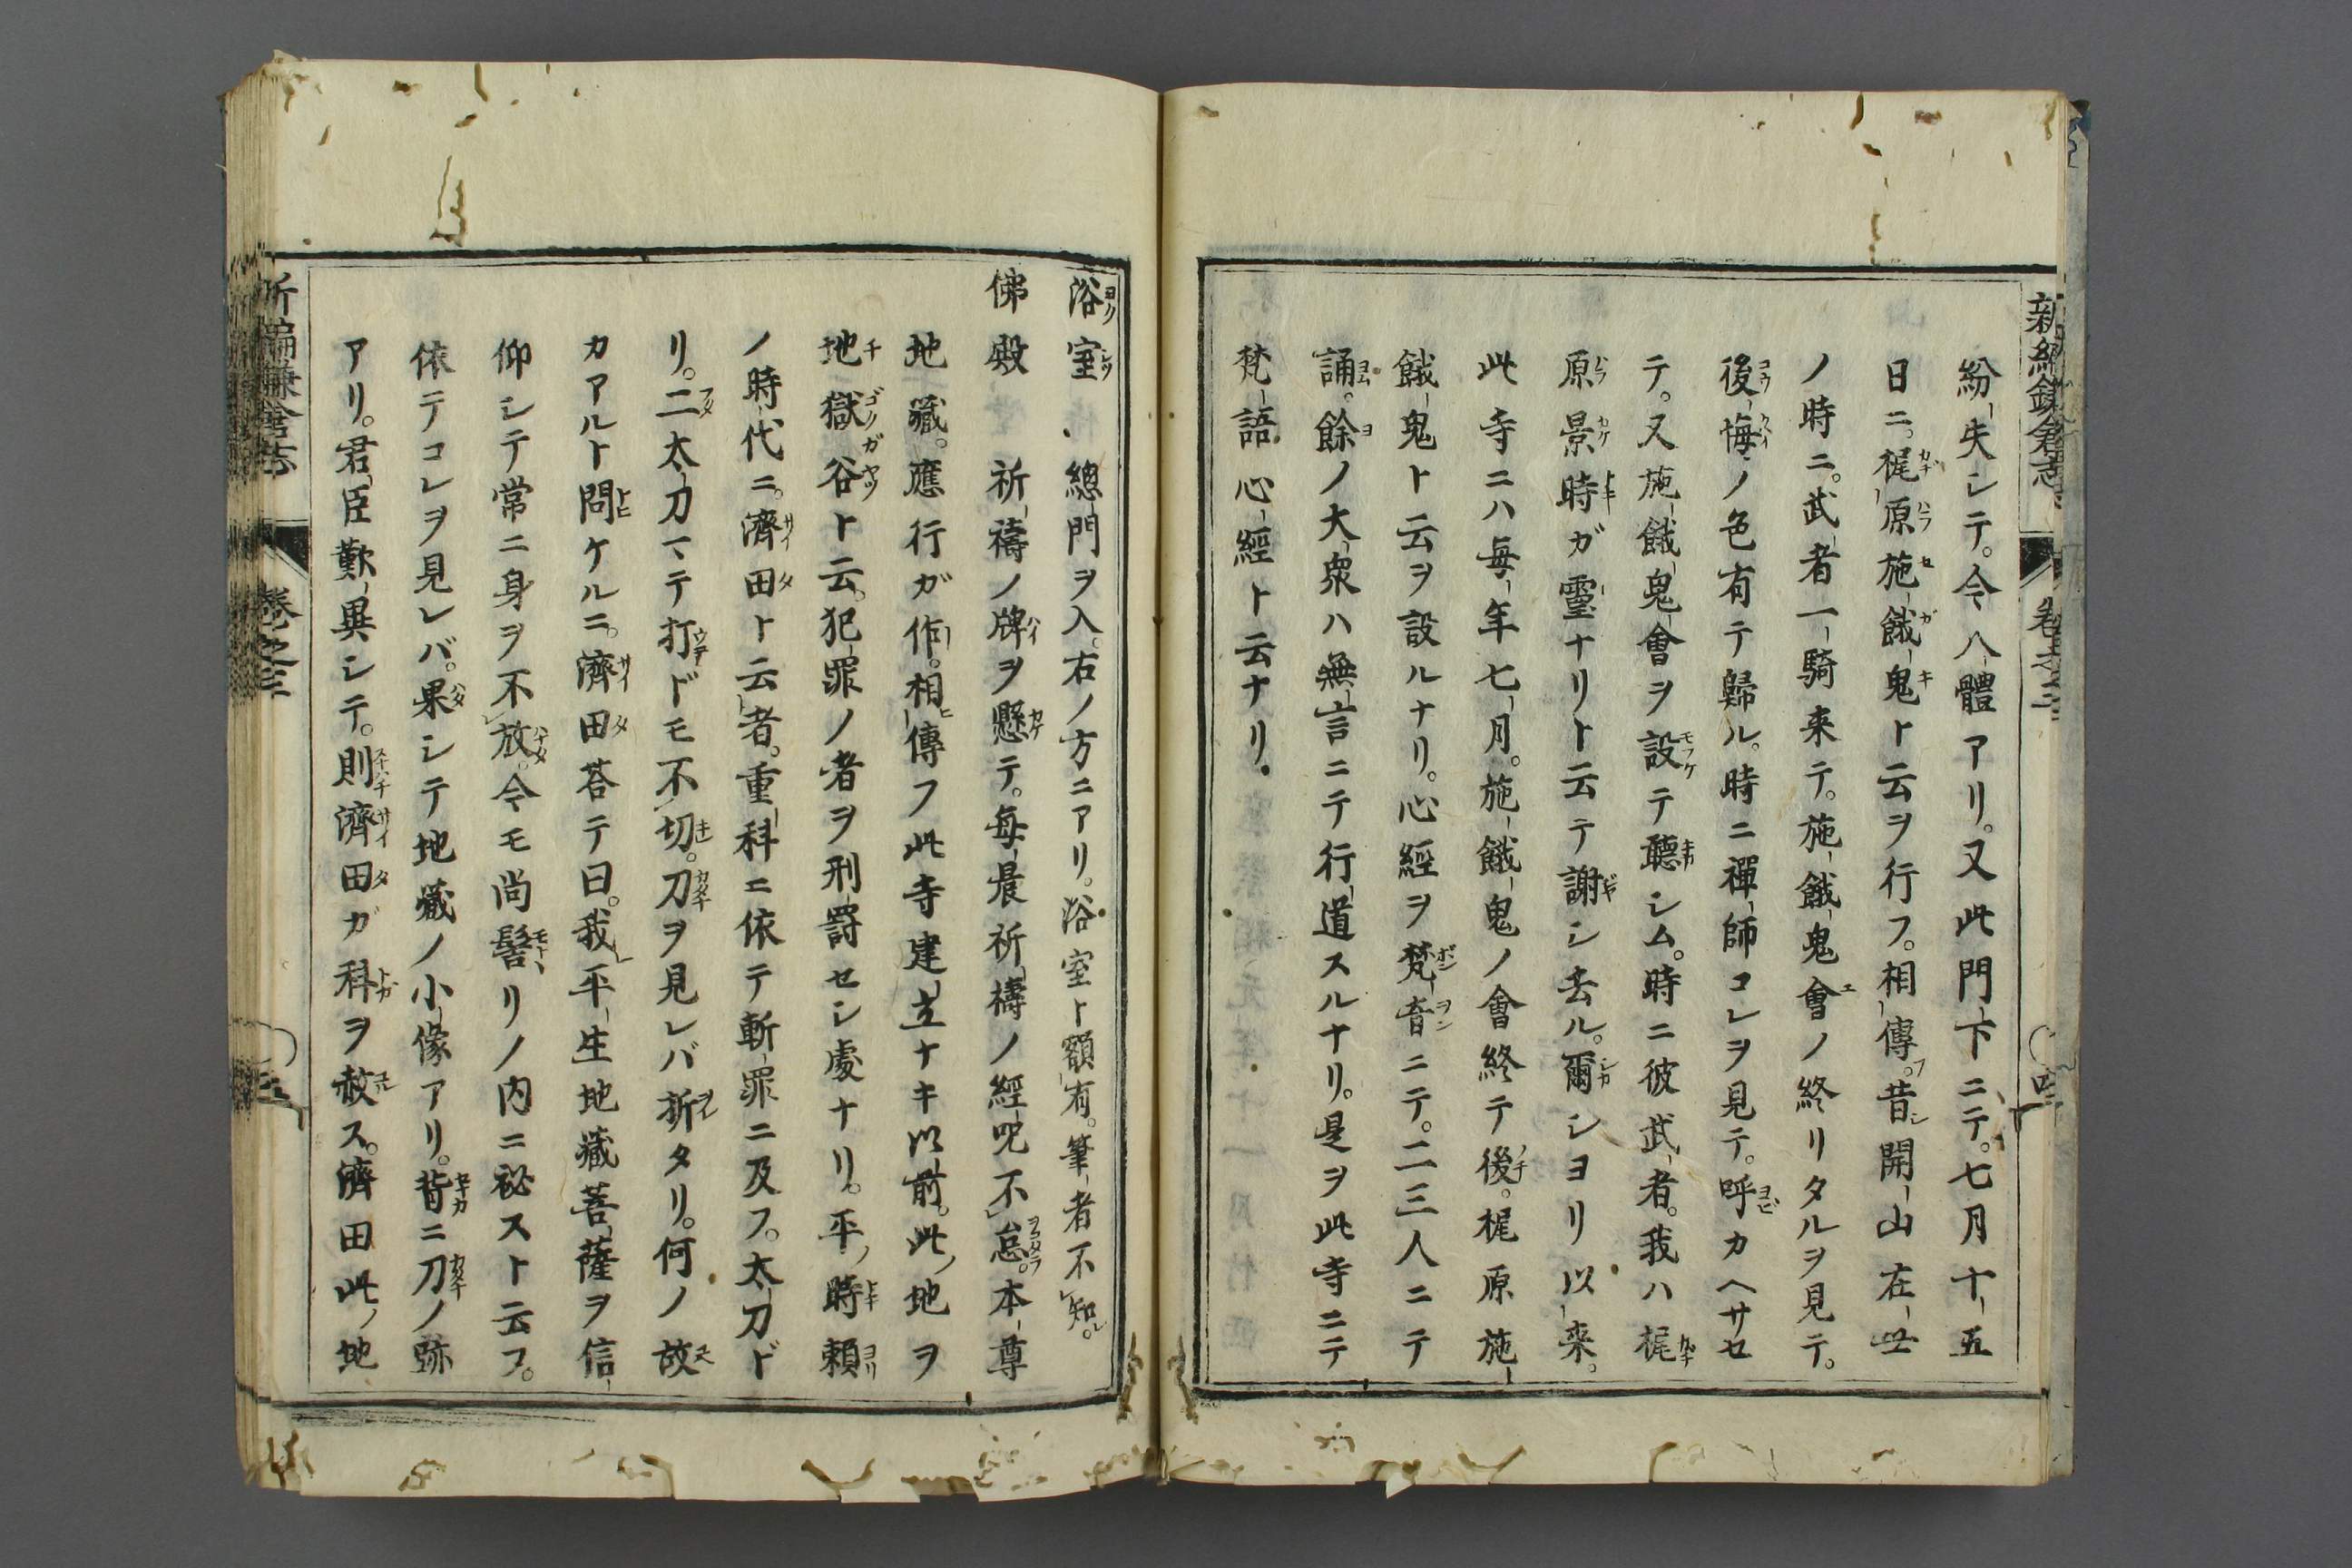 新編鎌倉志 卷之三
紛失シテ。今八體アリ。又此門下ニテ。七月十五
日ニ。梶原施餓鬼ト云ヲ行フ。相傳フ。昔シ開山在世
ノ時ニ。武者一騎来テ。施餓鬼會ノ終リタルヲ見テ。
後悔ノ色有テ歸ル。時ニ禪師コレヲ見テ。呼カヘサセ
テ。又施餓鬼會ヲ設テ聽シム。時ニ彼武者。我ハ梶
原景時ガ靈ナリト云テ謝シ去ル。爾シヨリ以来。
此寺ニハ毎年七月。施餓鬼ノ會終テ後。梶原施
餓鬼ト云ヲ設ルナリ。心經ヲ梵音ニテ。二三人ニテ
誦。餘ノ大衆ハ無言ニテ行道スルナリ。是ヲ此寺ニテ
梵語心經ト云ナリ。
浴室 總門ヲ入。右ノ方ニアリ。浴室ト額有。筆者不知。
佛殿 祈禱ノ牌ヲ懸テ。毎晨祈禱ノ經呪不怠。本尊
地藏。應行ガ作。相傳フ此寺建立ナキ以前。此ノ地ヲ
地獄谷ト云。犯罪ノ者ヲ刑罸セシ處ナリ。平ノ時頼
ノ時代ニ。濟田ト云者。重科ニ依テ斬罪ニ及フ。太刀ド
リ。二太刀マテ打ドモ不切。刀ヲ見レバ折タリ。何ノ故
カアルト問ケルニ。濟田荅テ曰。我平生地藏菩薩ヲ信
仰シテ常ニ身ヲ不放。今モ尚髻リノ内ニ祕スト云フ。
依テコレヲ見レバ。果シテ地藏ノ小像アリ。背ニ刀ノ跡
アリ。君臣歎異シテ。則濟田ガ科ヲ赦ス。濟田此ノ地
新編鎌倉志 卷之三